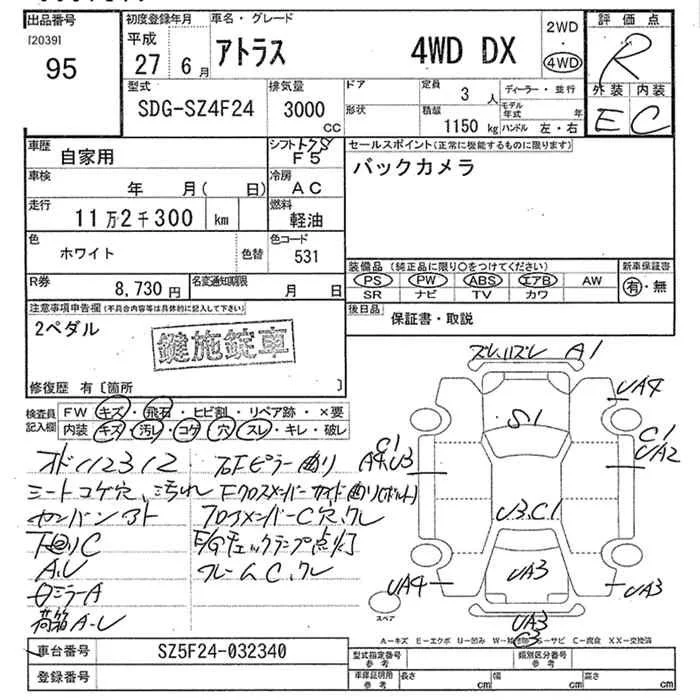 出品番号
[2039]
95
初度登録年月
平成
27 6月
車名・グレード
アトラス 4WD DX
2WD
・
4WD
評価点
R
外装 内装
E C
型式
SDG-SZ4F24
排気量
3000
CC
ドア
形状
定員
3 人
積載
1150 kg
ディーラー・並行
モデル年式 年
ハンドル 左・右
車歴
自家用
シフト
F5
車検
年 月( 日)
冷房
AC
走行
11万2千300 km
燃料
軽油
色
ホワイト
色替
色コード
531
R券
8,730円
名変通知期限
月 日
セールスポイント(正常に機能するものに限ります)
バックカメラ
装備品(純正品に限り○をつけてください)
PS PW ABS エアB AW
SR ナビ TV カワ
新車保証書
有・無
後日品
保証書・取説
注意事項申告欄(不具合内容等は具体的に記入して下さい)
2ペダル
鍵施錠車
修復歴 有〔箇所 〕
検査員記入欄
FW キズ・飛石・ヒビ割・リペア跡・×要
内装 キズ・汚れ・コゲ・穴・スレ・キレ・破レ
オド112312
シートコゲ穴、汚れ
カンバンアト
下回りC
A.U
ロミラーA
荷箱A-U
右Fピラー曲り
Fクロスメンバーガイド曲り(ボルト)
フロアメンバーC穴、クレ
E/Gチェックランプ点灯
フレームC、クレ
A1
UA4
S1
C1
UA2
C1
A4U3
U3.C1
UA3
UA4
UA3
UA3
C3
スペア
A=キズ E=エクボ U=凹み W=補修跡 S=サビ C=腐食 XX=交換済
車台番号
SZ5F24-032340
登録番号
型式指定番号
参考
類別区分番号
参考
車庫証明用
参考
長さ cm
幅 cm
高さ cm